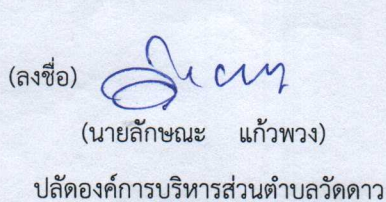 (ลงชื่อ)
(นายลักษณะ แก้วพวง)
ปลัดองค์การบริหารส่วนตำบลวัดดาว